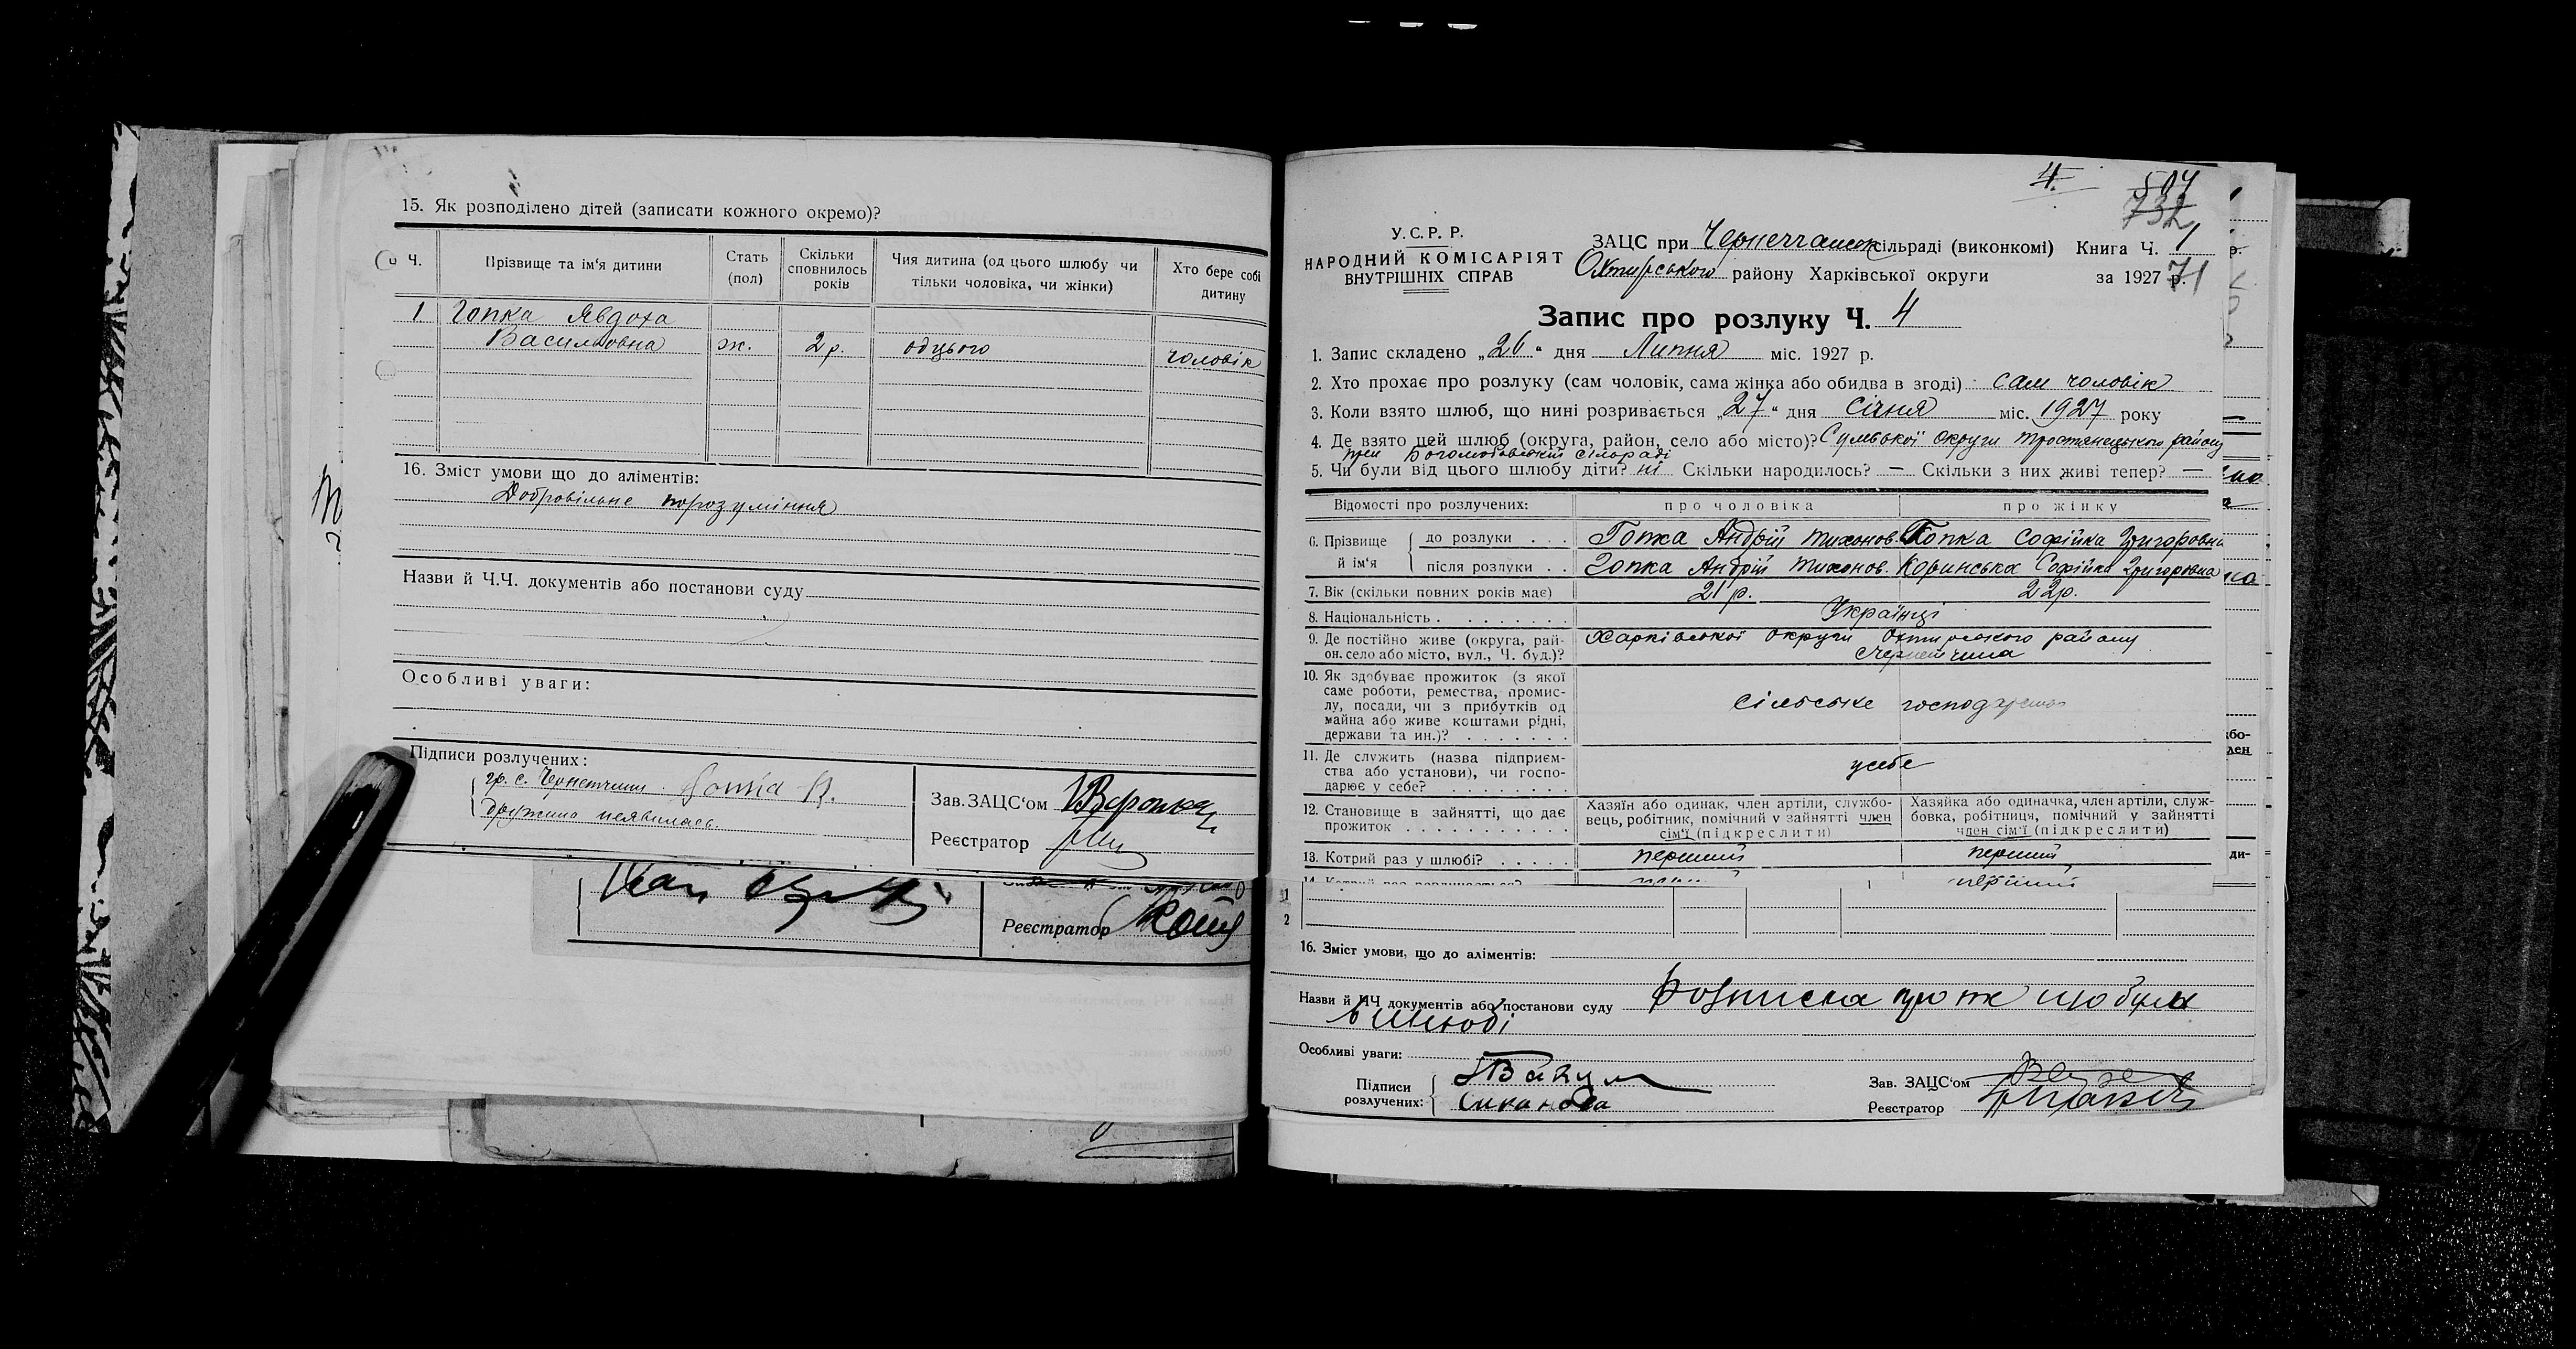 15. Як розподілено дітей (записати кожного окремо)?
Ч.
Прізвище та ім'я дитини
Стать
(пол)
Скільки
сповнилось
років
Чия дитина (од цього шлюбу чи
тільки чоловіка, чи жінки)
Хто бере собі
дитину
1. Гопка Явдоха
Васильовна ж. 2 р. од цього чоловік
16. Зміст умови що до аліментів:
Добровільне порозуміння
Назви й Ч.Ч. документів або постанови суду
Особливі уваги:
Підписи розлучених:
гр. с. Чернетчини
дружина неявилась
Зав. ЗАЦС'ом
Реєстратор
Реєстратор
4.
507
732
У.С.Р.Р.
НАРОДНИЙ КОМІСАРІЯТ
ВНУТРІШНІХ СПРАВ
ЗАЦС при сільраді (виконкомі) Книга Ч. 1
Охтирського району Харківської округи за 1927 р.
71
Запис про розлуку Ч. 4
1. Запис складено „26" дня Липня міс. 1927 р.
2. Хто прохає про розлуку (сам чоловік, сама жінка або обидва в згоді) сам чоловік
3. Коли взято шлюб, що нині розривається „27" дня Січня міс. 1927 року
4. Де взято цей шлюб (округа, район, село або місто)? Сумської округи Тростянецького району
при сілораді
5. Чи були від цього шлюбу діти? ні Скільки народилось? — Скільки з них живі тепер? —
Відомості про розлучених: про чоловіка про жінку
6. Прізвище
й ім'я
до розлуки . . . Гопка Андрій Тихонов. Гопка Софійка Григоровна
після розлуки . . Гопка Андрій Тихонов. Коринська Софійка Григоровна
7. Вік (скільки повних років має) 21 р. 22 р.
8. Національність . Українці
9. Де постійно живе (округа, рай-
он. село або місто, вул., Ч. буд.)?
Харківської округи Охтирського району
Чернетчина
10. Як здобуває прожиток (з якої
саме роботи, ремества, промис-
лу, посади, чи з прибутків од
майна або живе коштами рідні,
держави та ин.)?
сільське господарство
11. Де служить (назва підприєм-
ства або установи), чи госпо-
дарює у себе?
усебе
12. Становище в зайнятті, що дає
прожиток
Хазяїн або одинак, член артілі, службо-
вець, робітник, помічний у зайнятті член
сім'ї (підкреслити)
Хазяйка або одиначка, член артілі, служ-
бовка, робітниця, помічний у зайнятті
член сім'ї (підкреслити)
13. Котрий раз у шлюбі? перший перший
перший
1
2
16. Зміст умови, що до аліментів:
Назви й ЧЧ документів або постанови суду Розписка про те що були
в шлюбі
Особливі уваги:
Підписи
розлучених:
Зав. ЗАЦС'ом
Реєстратор